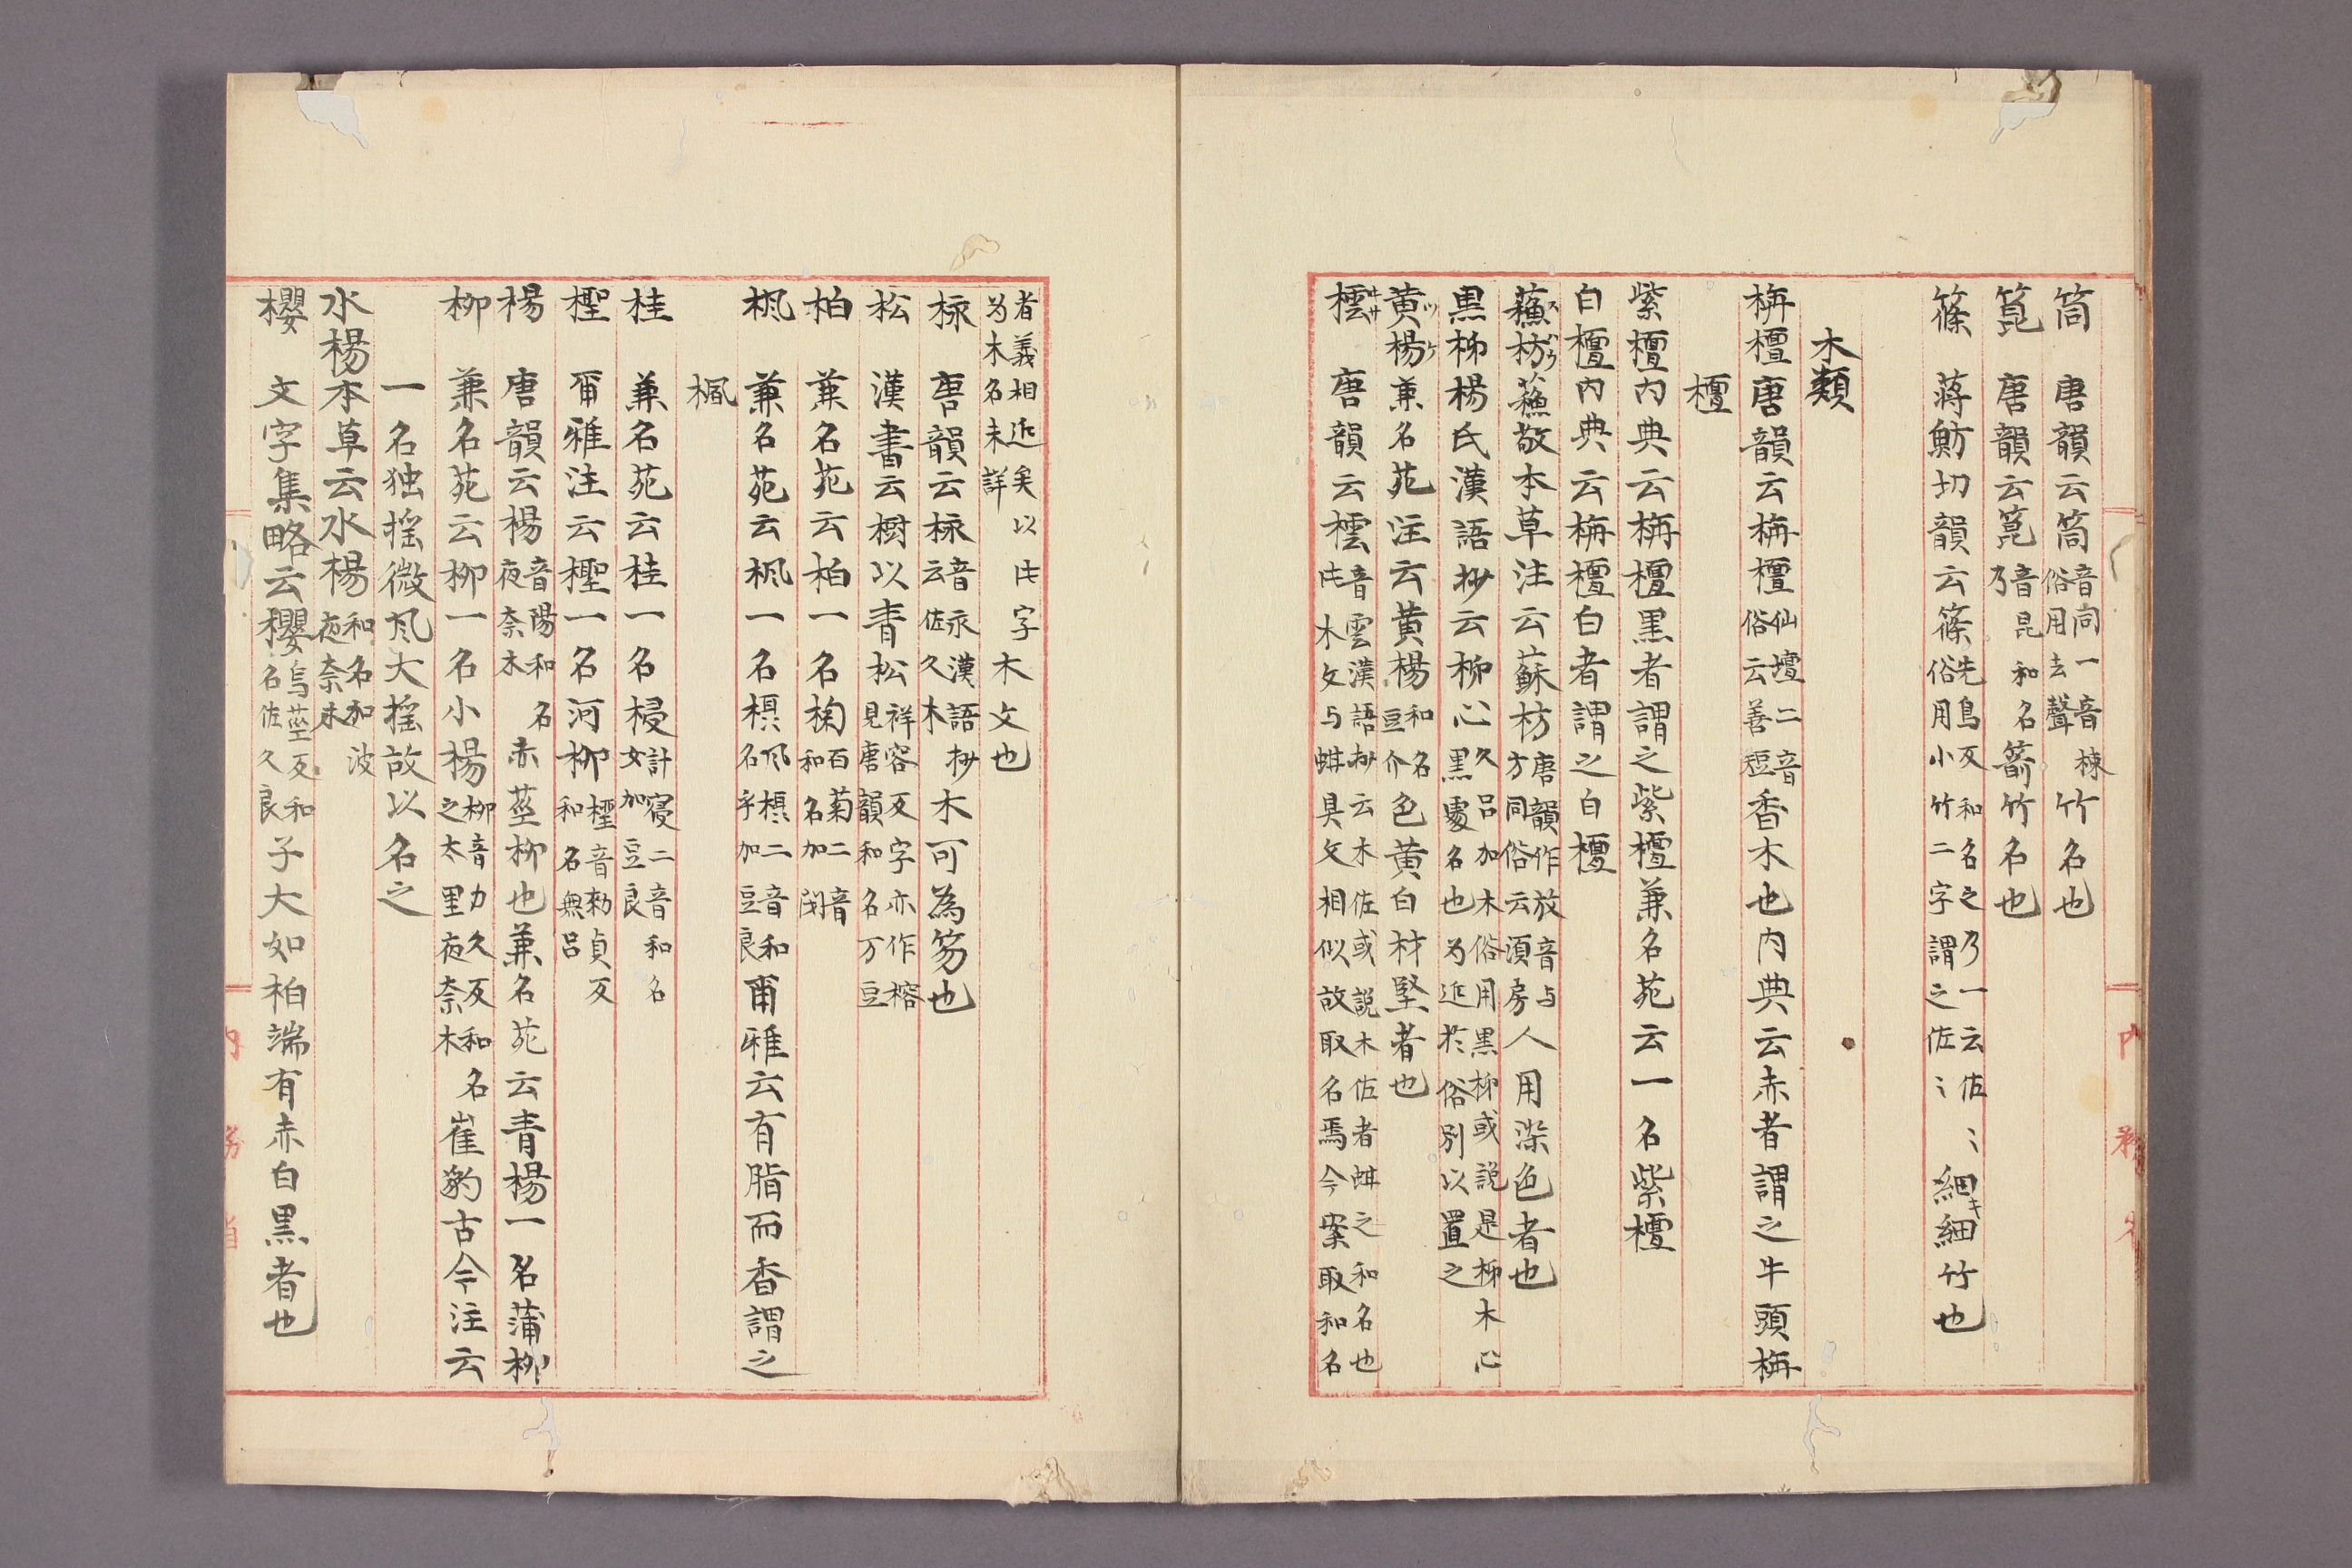 筒　唐韻云筒音同一音棟俗用去聲竹名也
箟　唐韻云箟音昆和名乃箭竹名也
篠　蒋魴切韻云篠先鳥反和名之乃一云佐々俗用小竹二字謂之佐々細々細竹也
木類
栴檀唐韻云栴檀仙壇二音俗云善短香木也内典云赤者謂之牛頭栴
檀
紫檀内典云栴檀黒者謂之紫檀兼名苑云一名紫檀
白檀内典云栴檀白者謂之白檀
蘓枋スハウ蘓敬本草注云蘇枋唐韻作放音与方同俗云湏房人用深色者也
黒柳楊氏漢語抄云柳心黒久呂加木俗用黒柳或説是柳木心黒處名也為近於俗別以置之
黄楊ツケ兼名苑注云黄楊和名豆介色黄白材堅者也
橒キサ　唐韻云橒音雲漢語抄云木佐或説木佐者蚶之和名也此木文与蚶具文相似故取名焉今案取和名
者義相近矣以此字為木名未詳木文也
栐　唐韻云栐音永漢語抄云佐久木木可為笏也
松　漢書云樹以青松祥容反字亦作榕見唐韻和名万豆
柏　兼名苑云柏一名椈百菊二音和名加閇
楓　兼名苑云楓一名欇风欇二音和名乎加豆良爾雅云有脂而香謂之
楓
桂　兼名苑云桂一名梫計寑二音和名女加豆良
檉　爾雅注云檉一名河柳檉音勑貞反和名無呂
楊　唐韻云楊音陽和名夜奈木赤莖柳也兼名苑云青楊一名蒲柳
柳　兼名苑云柳一名小楊柳音力久反和名之太里夜奈木崔豹古今注云
一名独揺微风大揺故以名之
水楊本草云水楊和名加波夜奈木
櫻　文字集略云櫻烏莖反和名佐久良子大如柏端有赤白黒者也